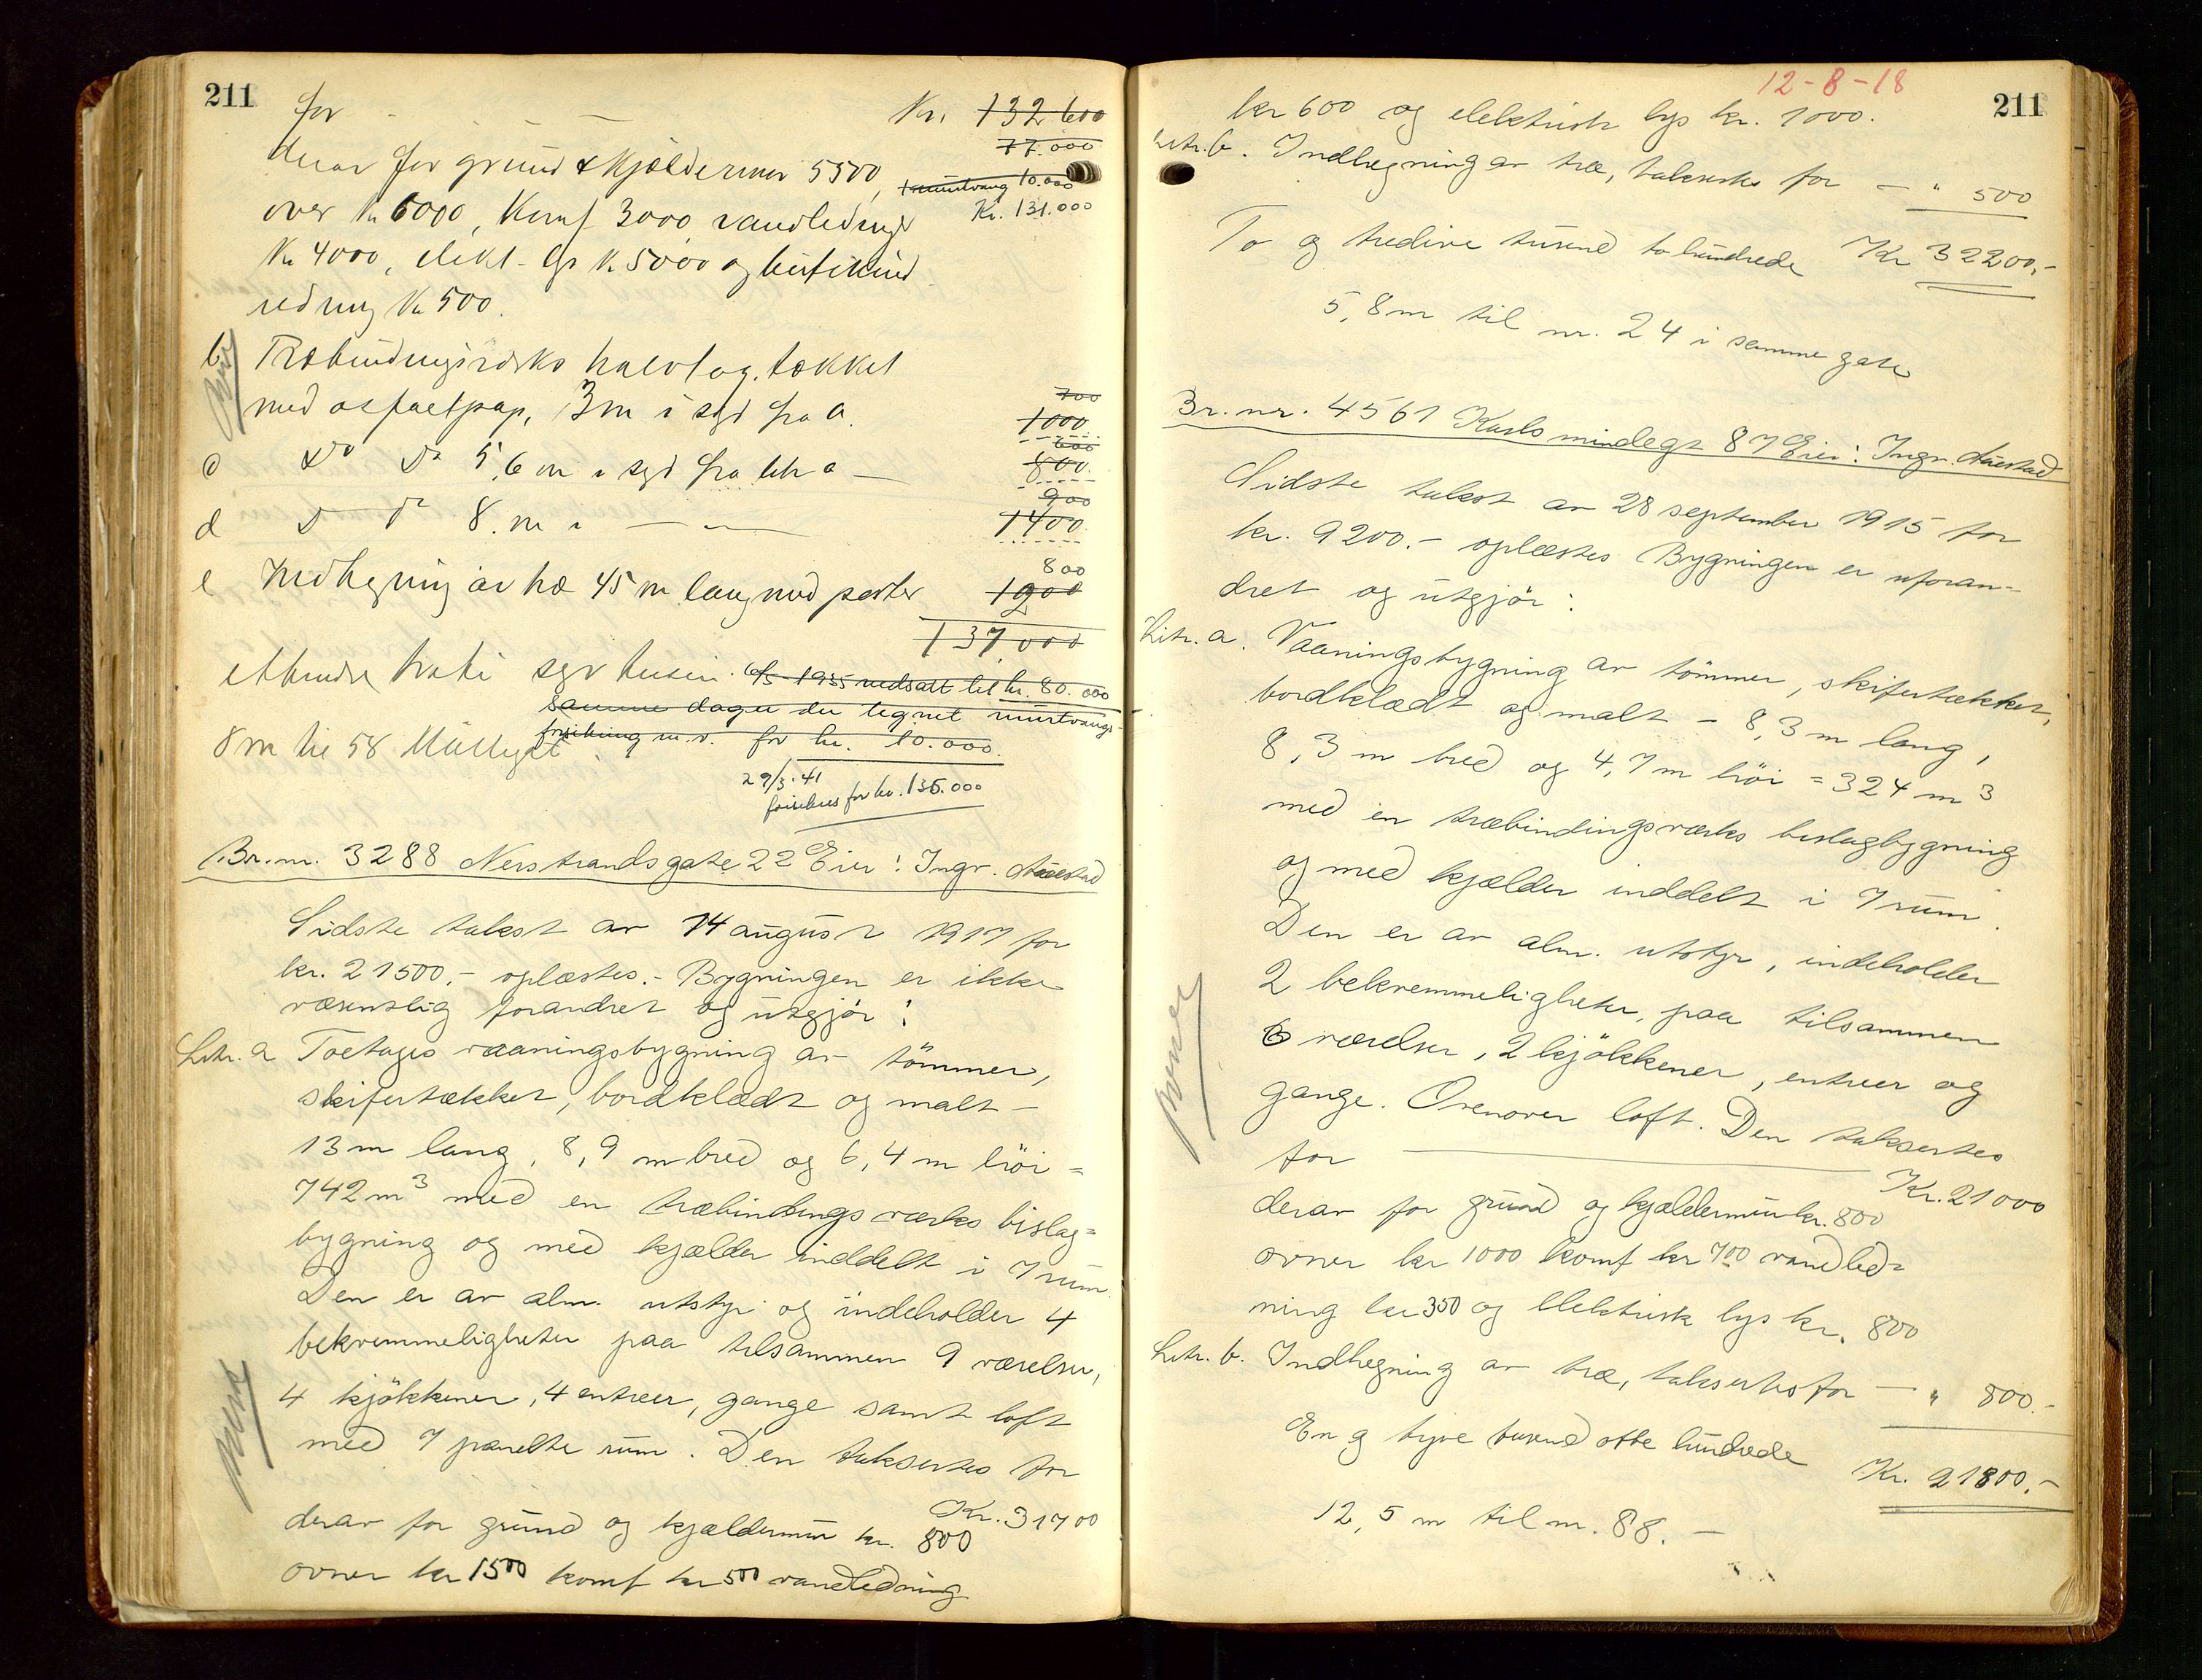 211
for — Kr. 132600
77.000
derav for grund & kjældermur 5500,
murtvang 10.000
over Kr 6000, Komf 3000 vandledning Kr. 131.000
Kr 4000, elekt. lys Kr 5000 og
redning Kr 500.
b Træbindingsverks halvtag, tækket
700
med asfaltpap, 3 m i syd fra a. 1000
600
c Do Do 5,6 m i syd fra litr a — 800.
900
d D do 8. m i — — 1400
800
e Indhegning av træ 45 m lang med porter 1200
137.000
6/5 - 1935 nedsatt til kr. 80.000
samme dager der tegnet murtvangs-
forsikring m.v. for kr. 10.000.
8 m til 58
29/3. 41
forsikres for kr. 135.000
Br. nr. 3288 Nerstrandsgate 22 Eier: Ingv. Auestad
Sidste takst av 14 august 1917 for
kr. 21500.- oplæstes. - Bygningen er ikke
væsentlig forandret og utgjør:
Litr. a Toetages vaaningsbygning av tömmer,
skifertækket, bordklædt og malt -
13 m lang, 8,9 m bred og 6,4 m höi =
742 m3 med en træbindingsverks bislag=
bygning og med kjælder inddelt i 7 rum.
Den er av alm. utstyr og indeholder 4
bekvemmeligheter paa tilsammen 9 værelser,
4 kjökkener, 4 entreer, gange samt loft
med 7 panelte rum. Den takseres for
Kr. 31700
derav for grund og kjældermur kr. 800
ovner kr 1500 komf kr 500 vandledning
12-8-18
211
kr 600 og elektrisk lys kr. 1000.
Litr. b. Indhegning av træ, takseres for — " 500
To og tredive tusend to hundrede Kr 32200,-
5,8 m til nr. 24 i samme gate
Br. nr. 4561 Karlsmindegt 87 Eier: Ingv. Auestad
Sidste takst av 28 september 1915 for
kr. 9200.- oplæstes Bygningen er uforan=
dret og utgjör:
Litr. a. Vaaningsbygning av tömmer, skifertækket,
bordklædt og malt - 8,3 m lang,
8,3 m bred og 4,7 m höi = 324 m3
med en træbindingsværks bislagbygning
og med kjælder inddelt i 7 rum.
Den er av alm. utstyr, indeholder
2 bekvemmeligheter, paa tilsammen
6 værelser, 2 kjökkener, entreer og
gange. Ovenover loft. Den takseres
for — Kr. 21000
derav for grund og kjældermur kr. 800
ovner kr 1000 komf kr 700 vandled=
ning kr 350 og elektrisk lys kr. 800
Litr. b. Indhegning av træ, takseres for — " 800.-
En og tyve tusend otte hundrede Kr. 21800.-
12,5 m til nr. 88. —